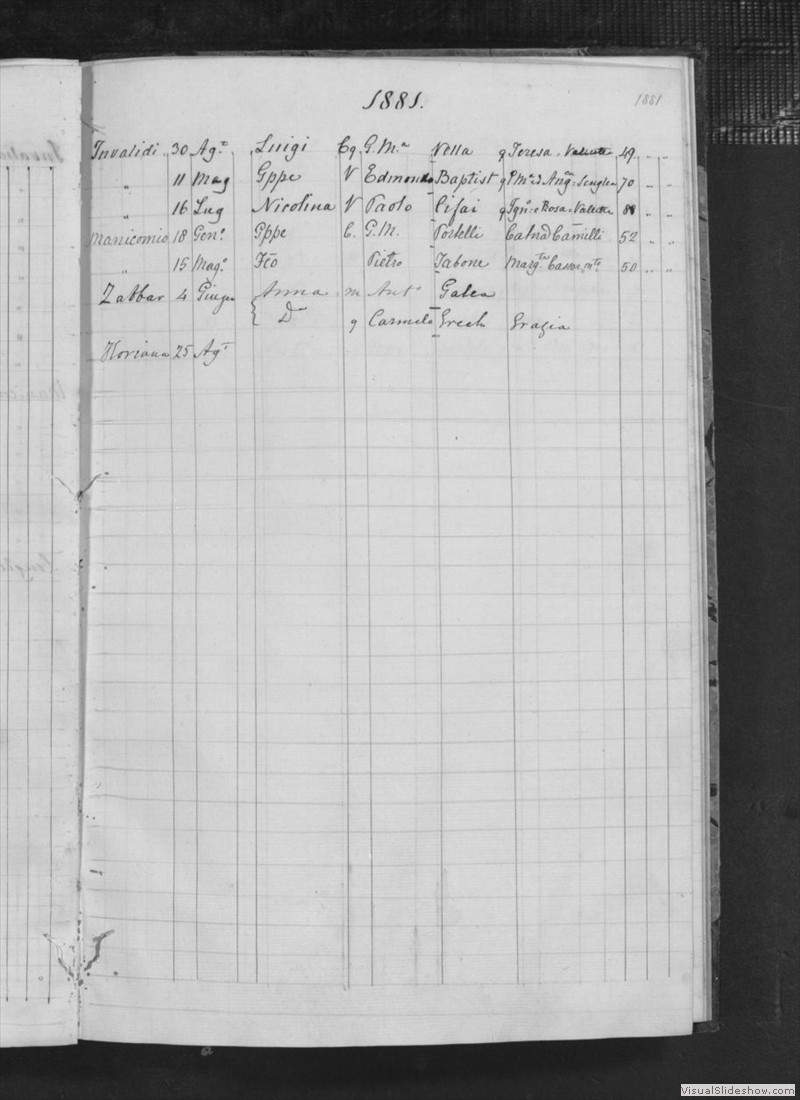 1881.
1881
Invalidi 30 Ag.º Luigi Cg G. M.ª Vella q Teresa - Valletta 49 " "
" 11 Mag Gppe V Edmondo Baptist q Senglea 70 " "
" 16 Lug Nicolina V Paolo Cifai q Ign.º e Rosa - Valletta 88 " "
Manicomio 18 Gen.º Gppe C. G. M. Portelli Catna D Camilli 52 " "
" 15 Mag.º Fco Pietro Tabone Marg.ta Cassar 50 " "
Zabbar 4 Giugn Anna m Ant.º Galea
Dª q Carmelo Grech Grazia
Floriana 25 Ag.t
VisualSlideshow.com